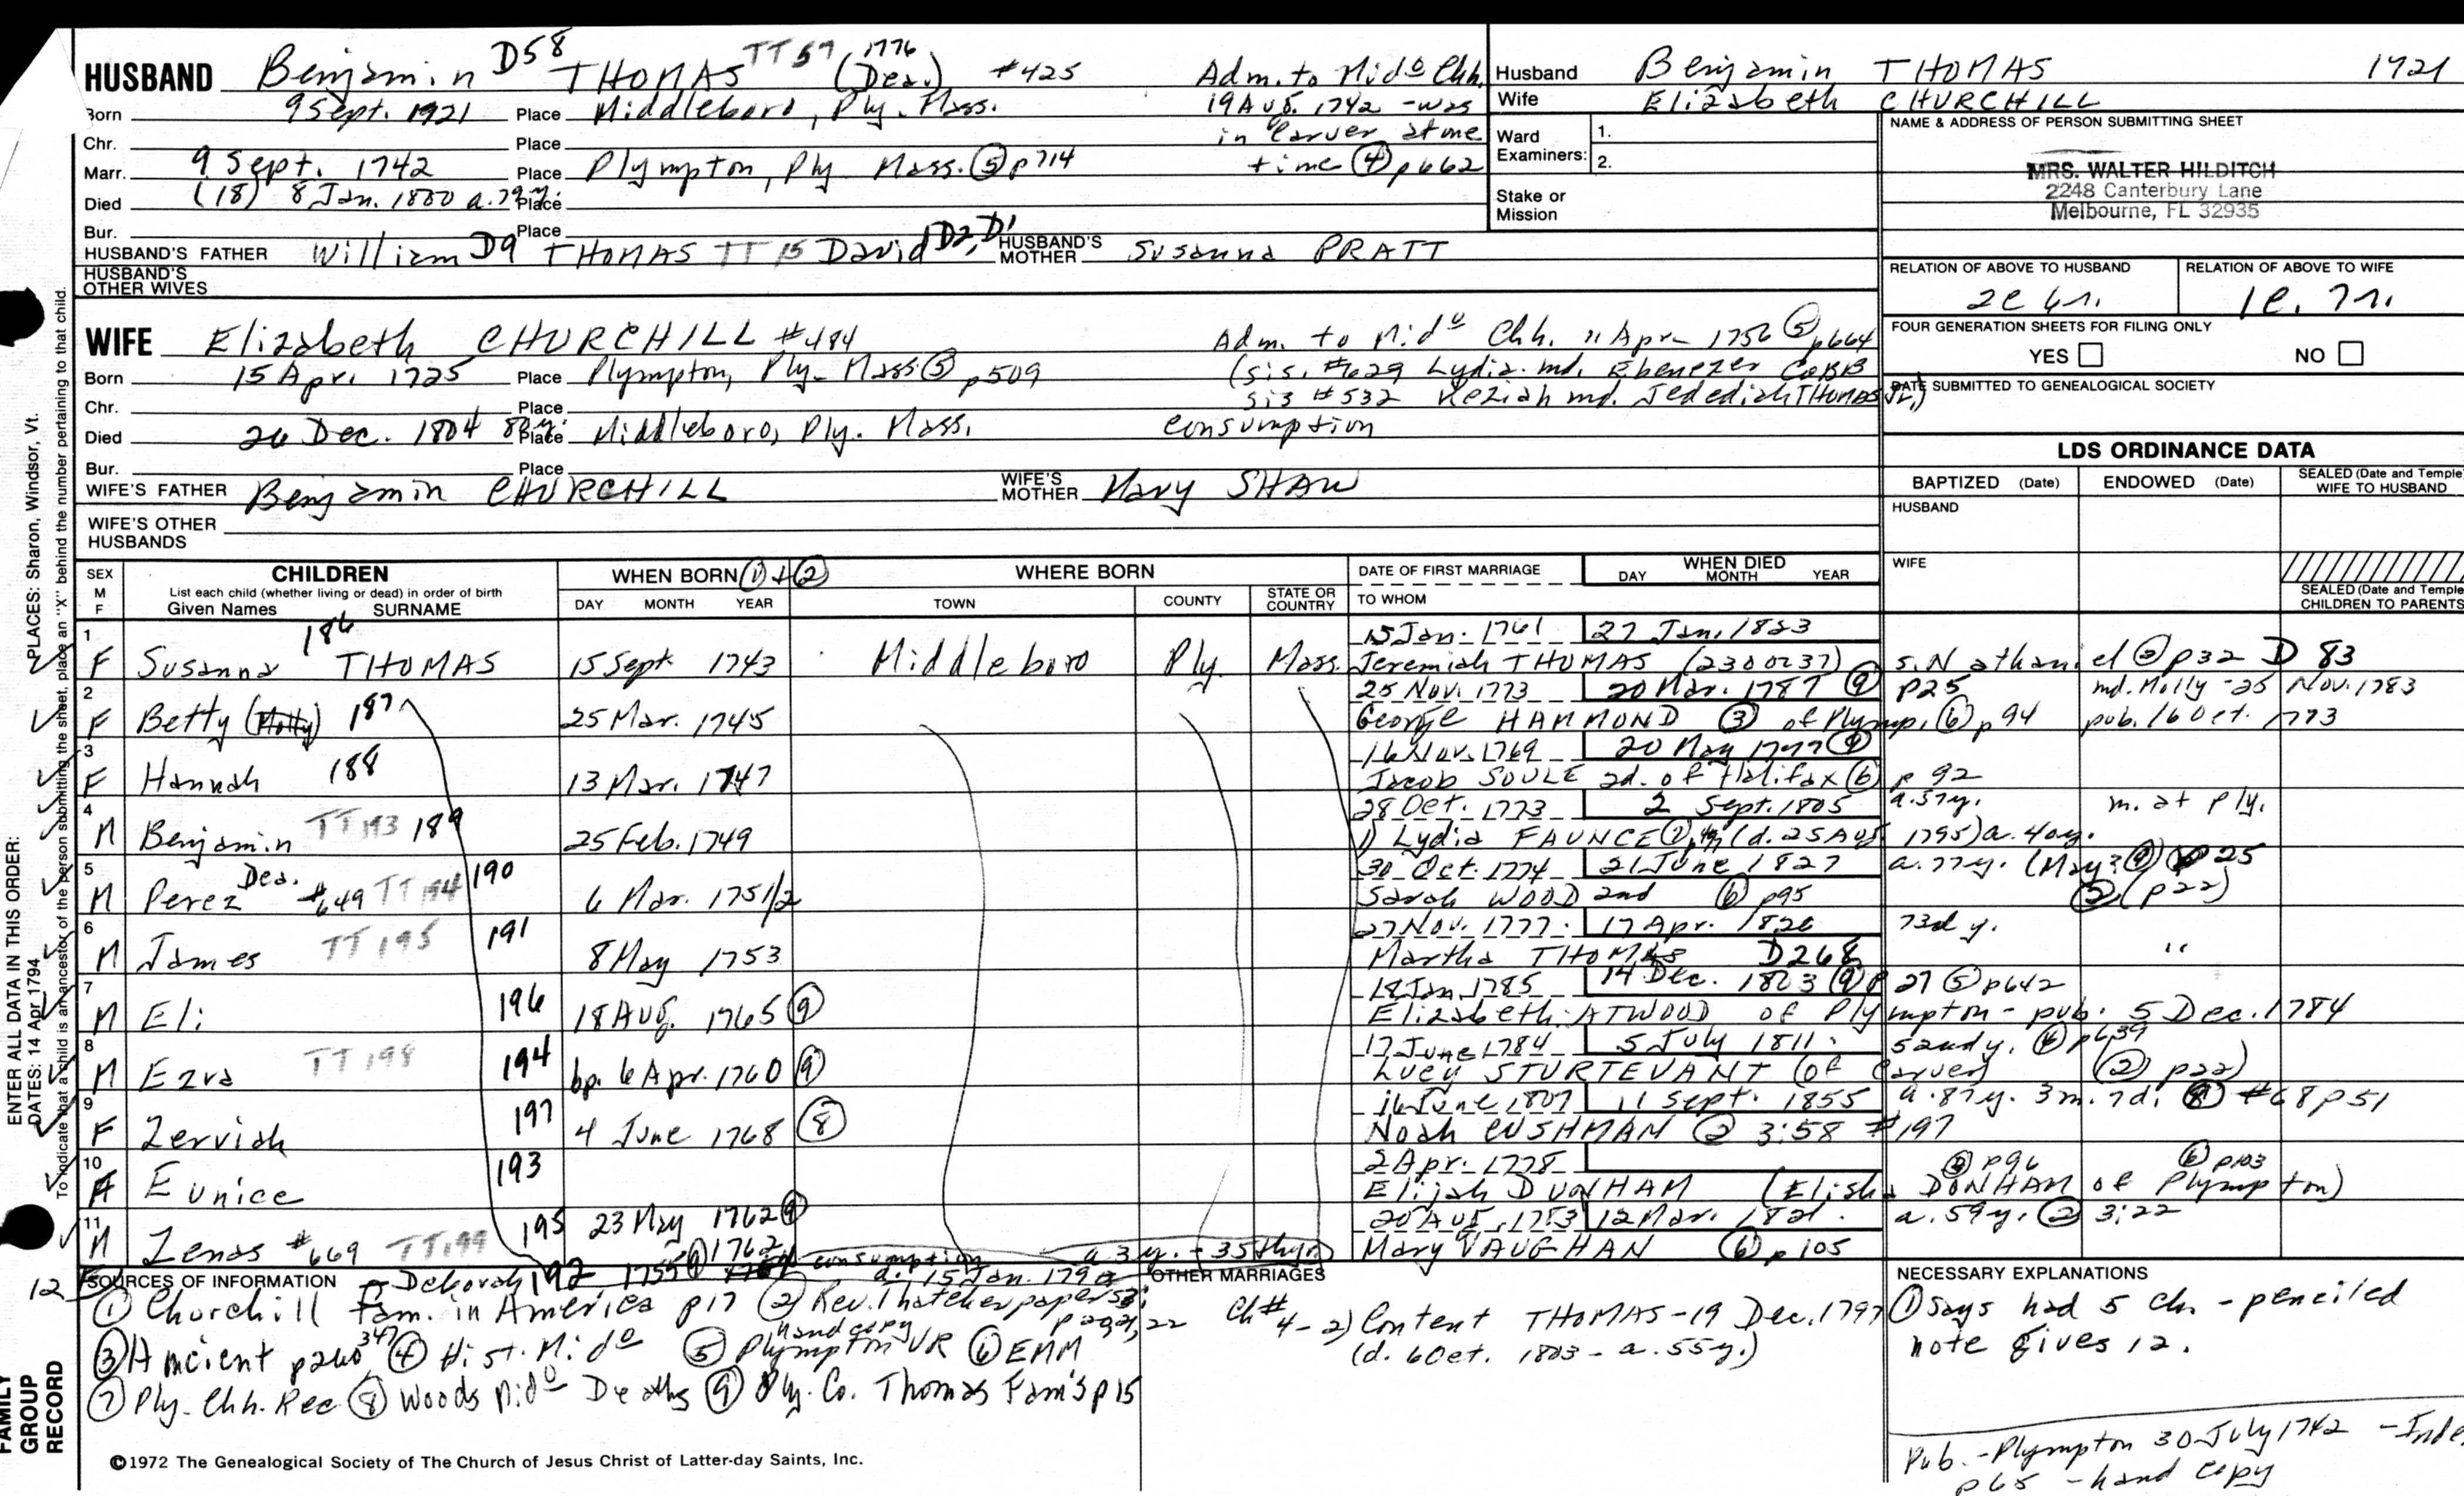 HUSBAND Benjamin D58 THOMAS TT57 (Dea.) 1776 #425 Adm. to Mido Chh.
Born 9 Sept. 1921 Place Middleboro, Ply. Mass. 19 Aug. 1742 - was
Chr. Place in Carver at one
Marr. 9 Sept. 1742 Place Plympton, Ply Mass. (5) p714 time (4) p662
Died (18) 8 Jan. 1800 a. 79 y. Place
Bur. Place
HUSBAND'S FATHER William D9 THOMAS TT 15 David D2, D1 HUSBAND'S MOTHER Susanna PRATT
HUSBAND'S OTHER WIVES
WIFE Elizabeth CHURCHILL #484 Adm. to Mido Chh. 11 Apr 1756 (5) p664
Born 15 Apr. 1725 Place Plympton, Ply. Mass (5) p509 (sis. #629 Lydia md. Ebenezer COBB
Chr. Place sis #532 Keziah md. Jedediah THOMAS Jr.)
Died 26 Dec. 1804 80 y. Place Middleboro, Ply. Mass. consumption
Bur. Place
WIFE'S FATHER Benjamin CHURCHILL WIFE'S MOTHER Mary SHAW
WIFE'S OTHER HUSBANDS
Husband Benjamin THOMAS 1721
Wife Elizabeth CHURCHILL
Ward Examiners: 1.
2.
Stake or Mission
NAME & ADDRESS OF PERSON SUBMITTING SHEET
MRS. WALTER HILDITCH
2248 Canterbury Lane
Melbourne, FL 32935
RELATION OF ABOVE TO HUSBAND RELATION OF ABOVE TO WIFE
2c 6r. 1c. 7r.
FOUR GENERATION SHEETS FOR FILING ONLY
YES NO
DATE SUBMITTED TO GENEALOGICAL SOCIETY
LDS ORDINANCE DATA
BAPTIZED (Date) ENDOWED (Date) SEALED (Date and Temple) WIFE TO HUSBAND
HUSBAND
WIFE
SEALED (Date and Temple) CHILDREN TO PARENTS
SEX M F CHILDREN WHEN BORN (1) + (2) WHERE BORN DATE OF FIRST MARRIAGE WHEN DIED
List each child (whether living or dead) in order of birth DAY MONTH YEAR
Given Names SURNAME DAY MONTH YEAR TOWN COUNTY STATE OR COUNTRY TO WHOM
1 186 15 Jan. 1761 27 Jan. 1823
F Susanna THOMAS 15 Sept 1743 Middleboro Ply. Mass. Jeremiah THOMAS (2300237) s. Nathaniel (2) p32 D 83
2 25 Nov. 1773 20 Mar. 1787 (9) p25 md. Molly - 25 Nov. 1783
F Betty (Molly) 187 25 Mar. 1745 George HAMMOND (3) of Plymp. (6) p94 pub. 16 Oct. 1773
3 16 Nov. 1769 20 May 1777 (9)
F Hannah 188 13 Mar. 1747 Jacob SOULE 2d. of Halifax (6) p 92
4 28 Oct. 1773 2 Sept. 1805 a. 57y. m. at Ply.
M Benjamin TT193 189 25 Feb. 1749 1) Lydia FAUNCE (d. 25 Aug. 1795) a. 40y.
5 Dea. 30 Oct. 1774 21 June 1827 a. 77y. (May? (9) p25
M Perez #649 TT194 190 6 Mar. 1751/2 Sarah WOOD 2nd (6) p95 (2) (p22)
6 27 Nov. 1777 17 Apr. 1826 73d y.
M James TT195 191 8 May 1753 Martha THOMAS D268 "
7 18 Jan. 1785 14 Dec. 1803 (9) p 27 (5) p642
M Eli 196 18 Aug. 1765 (9) Elizabeth ATWOOD of Plympton - pub. 5 Dec. 1784
8 17 June 1784 5 July 1811. (4) p639
M Ezra TT198 194 bp. 6 Apr. 1760 (9) Lucy STURTEVANT (of Carver) (2) p22)
9 16 June 1807 11 Sept. 1855 a. 87y. 3m. 7d. (8) #68 p51
F Zerviah 197 4 June 1768 (8) Noah CUSHMAN (2) 3:58 #197
10 2 Apr. 1778 p96 (6) p103
F Eunice 193 Elijah DUNHAM (Elisha DONHAM of Plympton)
11 20 Aug. 1783 12 Mar. 1821. a. 59 y. (2) 3:22
M Zenas #669 TT199 195 23 May 1762 (9) Mary VAUGHAN (6) p 105
12 F Deborah 192 1755 (9) 1762 consumption d. 15 Jan. 1790 a 3 y. - 35th yr)
SOURCES OF INFORMATION
(1) Churchill Fam. in America p17 (2) Rev. Thatcher papers
(3) Ancient p260 347 (4) Hist. Mido (5) Plympton VR hand copy (6) EMM
(7) Ply. Chh. Rec (8) Woods Mido Deaths (9) Ply. Co. Thomas Fam's p15
OTHER MARRIAGES
Ch# 4 - 2) Content THOMAS - 19 Dec. 1797
(d. 6 Oct. 1803 - a. 55 y.)
NECESSARY EXPLANATIONS
(1) says had 5 ch. - penciled
note gives 12.
Pub. - Plympton 30 July 1742 - Inde
p65 - hand copy
©1972 The Genealogical Society of The Church of Jesus Christ of Latter-day Saints, Inc.
FAMILY GROUP RECORD
ENTER ALL DATA IN THIS ORDER:
DATES: 14 Apr 1794 PLACES: Sharon, Windsor, Vt.
To indicate that a child is an ancestor of the person submitting the sheet, place an "X" behind the number pertaining to that child.